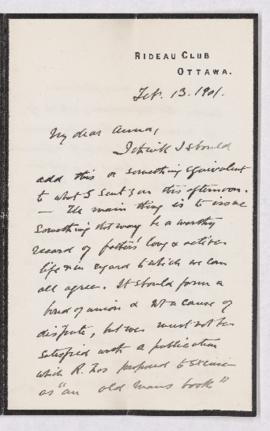 RIDEAU CLUB
OTTAWA.
Feb. 13. 1901.
My dear Anna,
I think I should
add this or something equivalent
to what I sent you this afternoon.
— The main thing is to issue
something that may be a worthy
record of father's long & active
life & in regard to which we can
all agree. It should form a
bond of union & not a cause of
dispute, but we must not be
satisfied with a publication
which R. has proposed to
as "an old mans book"